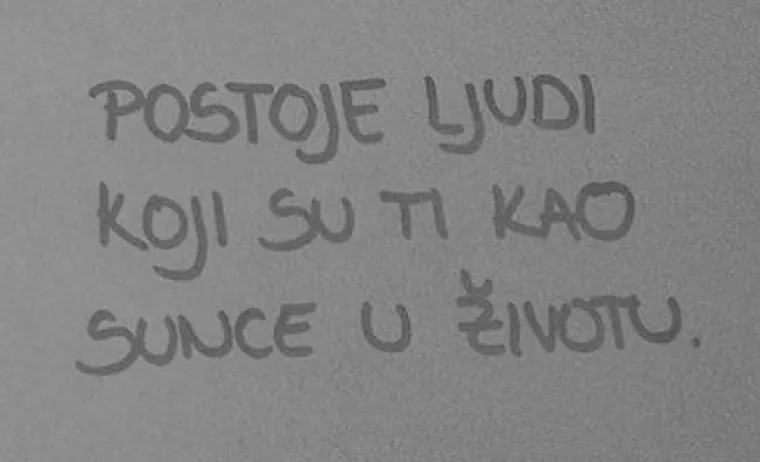 POSTOJE LJUDI
KOJI SU TI KAO
SUNCE U ŽIVOTU.